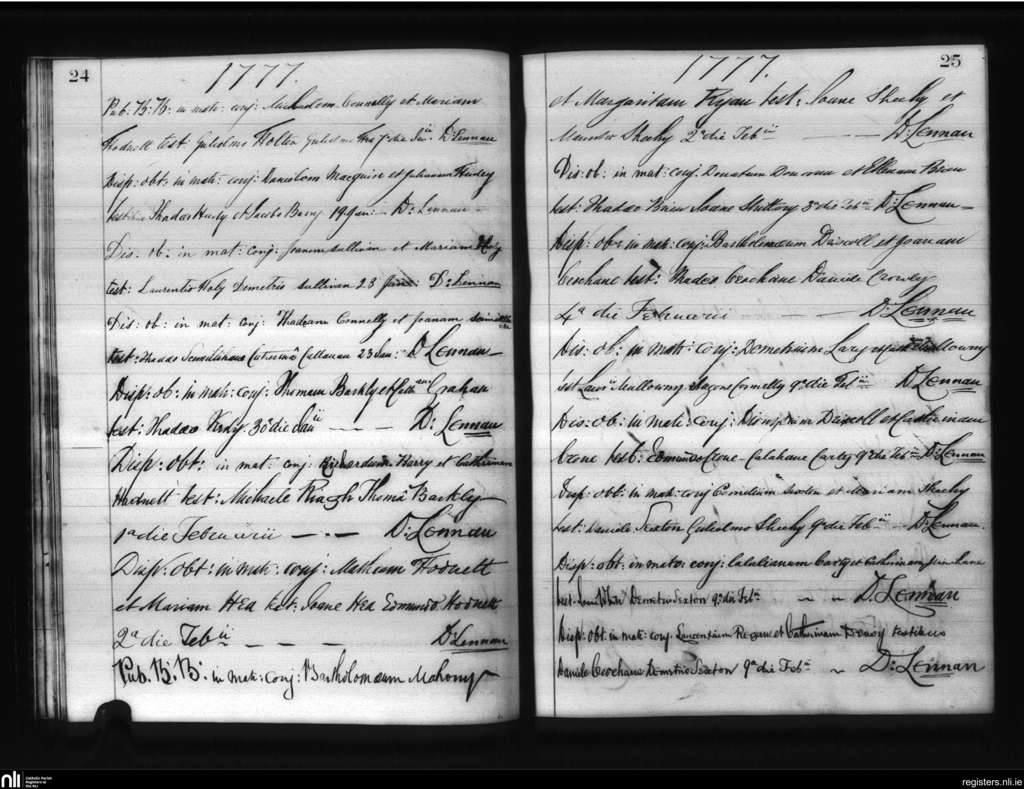 24
1777.
Pub: B: B: in mat: conj: Connelly et Mariam
Hodnett test: Gulielmo Holten die Jan: D: Lennan
Disp: obt: in mat: conj: Danielem Macguire et Julianam Hurley
test: Thadao Hurly et Jacobo Barry 19 Jan: — D: Lennan
Dis: ob: in mat: conj: Joanem Sullivan et Mariam Haly
test: Laurentio Haly Demetrio Sullivan 23 D: Lennan
Dis: ob: in mat: conj: Thadeum Connelly et Joanam
test: Thadao Catherina Callanan 23 Jan: D: Lennan
Disp: ob: in mat: conj: Thomam Barkly et Graham
test: Thadao 30 die Janii — — D: Lennan
Disp: obt: in mat: conj: Richardum Harry et Catherinam
Hodnett test: Michaele Thoma Barkley
1a die Februarii — . — D: Lennan
Disp: obt: in mat: conj: Matheum Hodnett
et Mariam Hea test: Joane Hea Edmundo Hodnett
2a die Febii — — — D: Lennan
Pub. B: B: in mat: conj: Bartholomeum Mahony
25
1777.
et Margaritam Ryan test: Joane Sheehy et
Sheehy 2a die Febii — D: Lennan
Dis: ob: in mat: conj: Donatum Donovan et Ellenam Brien
test: Thadao Brien Joane Slattery 3a die Febii D: Lennan —
Disp: obt: in mat: conj: Bartholomeum Driscoll et Joanam
Ceochane test: Thadeo Ceochane Davide Crowly
4a die Februarii — — D: Lennan
Dis: ob: in mat: conj: Demetrium Lary et Mullowny
test Laur: Mullowny Connelly 9a die Febii D: Lennan
Dis: ob: in mat: conj: Driscoll et Catherinam
Crone test: Edmundo Crone Calahane Carty 9a die Febii D: Lennan
Disp: obt: in mat: conj: Sexton et Mariam Sheehy
test: Daniele Sexton Gulielmo Sheehy 9a die Febii — D: Lennan.
Disp: obt: in mat: conj: Calahanum Carty et Catherinam
test: Demetrio Sexton 9a die Febii ~ ~ D: Lennan
Disp: obt: in mat: conj: Laurentium Regane et Catherinam testibus
Daniele Ceochane Demetrio Sexton 9a die Febii ~ D: Lennan
nli
Catholic Parish
Registers at
the NLI
registers.nli.ie